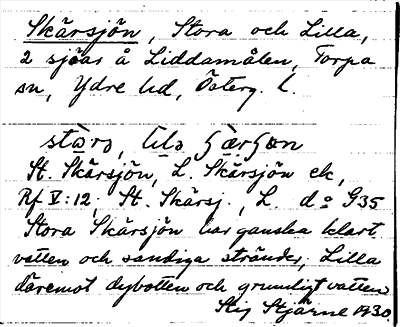 Skärsjön, Stora och Lilla,
2 sjöar å Liddamålen, Torpa
sn, Ydre hd, Österg. l.
stora, lila
St. Skärsjön, L. Skärsjön ek,
Rf V:12; St. Skärsj., L. do G35
Stora Skärsjön har ganska klart
vatten och sandiga stränder, Lilla
däremot dybotten och grumligt vatten.
Stig Stjärne 1930.